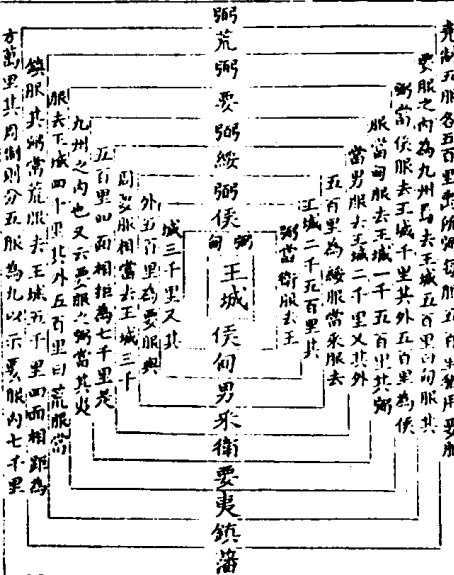 堯制五服各五百里禹所弼每服五百里猶用要服
要服之內為九州焉去王城五百里曰甸服其
弼當侯服去王城千里其外五百里為侯
服當甸服去王城一千五百里其弼
當男服去王城二千里又其外
五百里為綏服當采服去
王城二千五百里其
弼當衛服去王
弼荒弼要弼綏弼侯
弼甸
王城
侯甸男采衛要夷鎮藩
城三千里又其
外五百里為要服與
周要服相當去王城三千
五百里四面相距為七千里是
九州之內也又云要服之弼當其夷
服去王城四千里其外五百里曰荒服當
鎮服其弼當荒服去王城五千里四面相距為
方萬里其周制則分五服為九以示要服內七千里